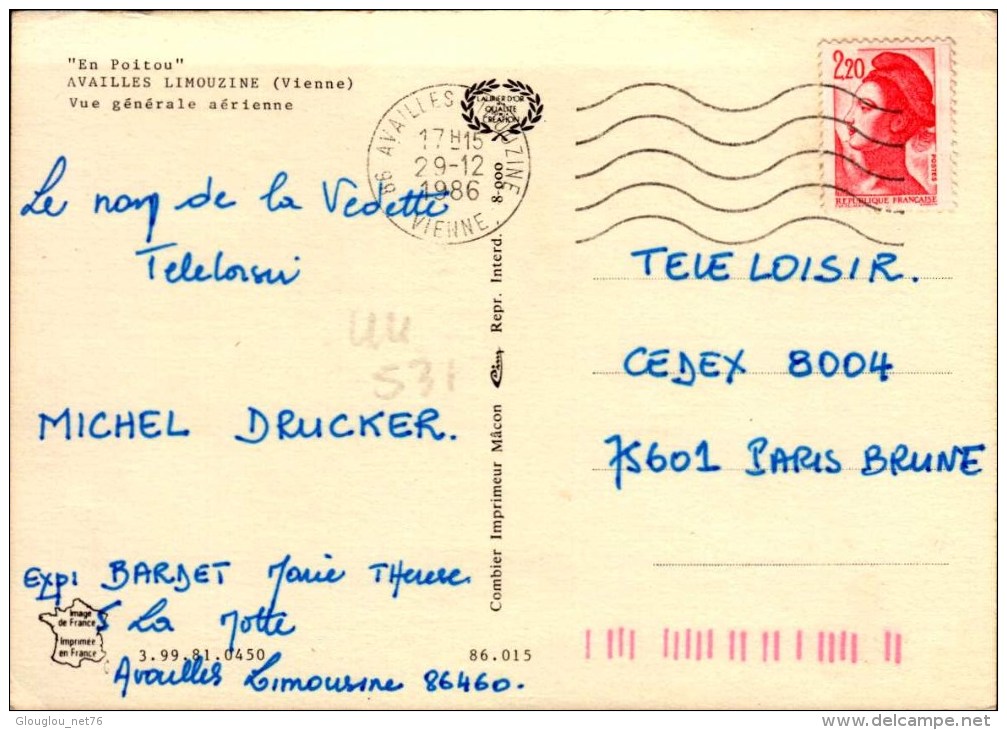 "En Poitou"
AVAILLES LIMOUZINE (Vienne)
Vue générale aérienne
LAURIER D'OR
DE
QUALITÉ
CREATION
86 AVAILLES LIMOUZINE
17H15
29-12
1986
VIENNE
2,20
POSTES
REPUBLIQUE FRANÇAISE
Le nom de la Vedette
Teleloisir
UU
531
MICHEL DRUCKER.
Exp: BARDET Marie Therese
5 La Motte
Availles Limousine 86460.
Image
de France
Imprimée
en France
3.99.81.0450
86.015
Combier Imprimeur Mâcon Cim Repr. Interd. 8-000
TELE LOISIR.
CEDEX 8004
75601 PARIS BRUNE
Glouglou_net76
delcampe.net